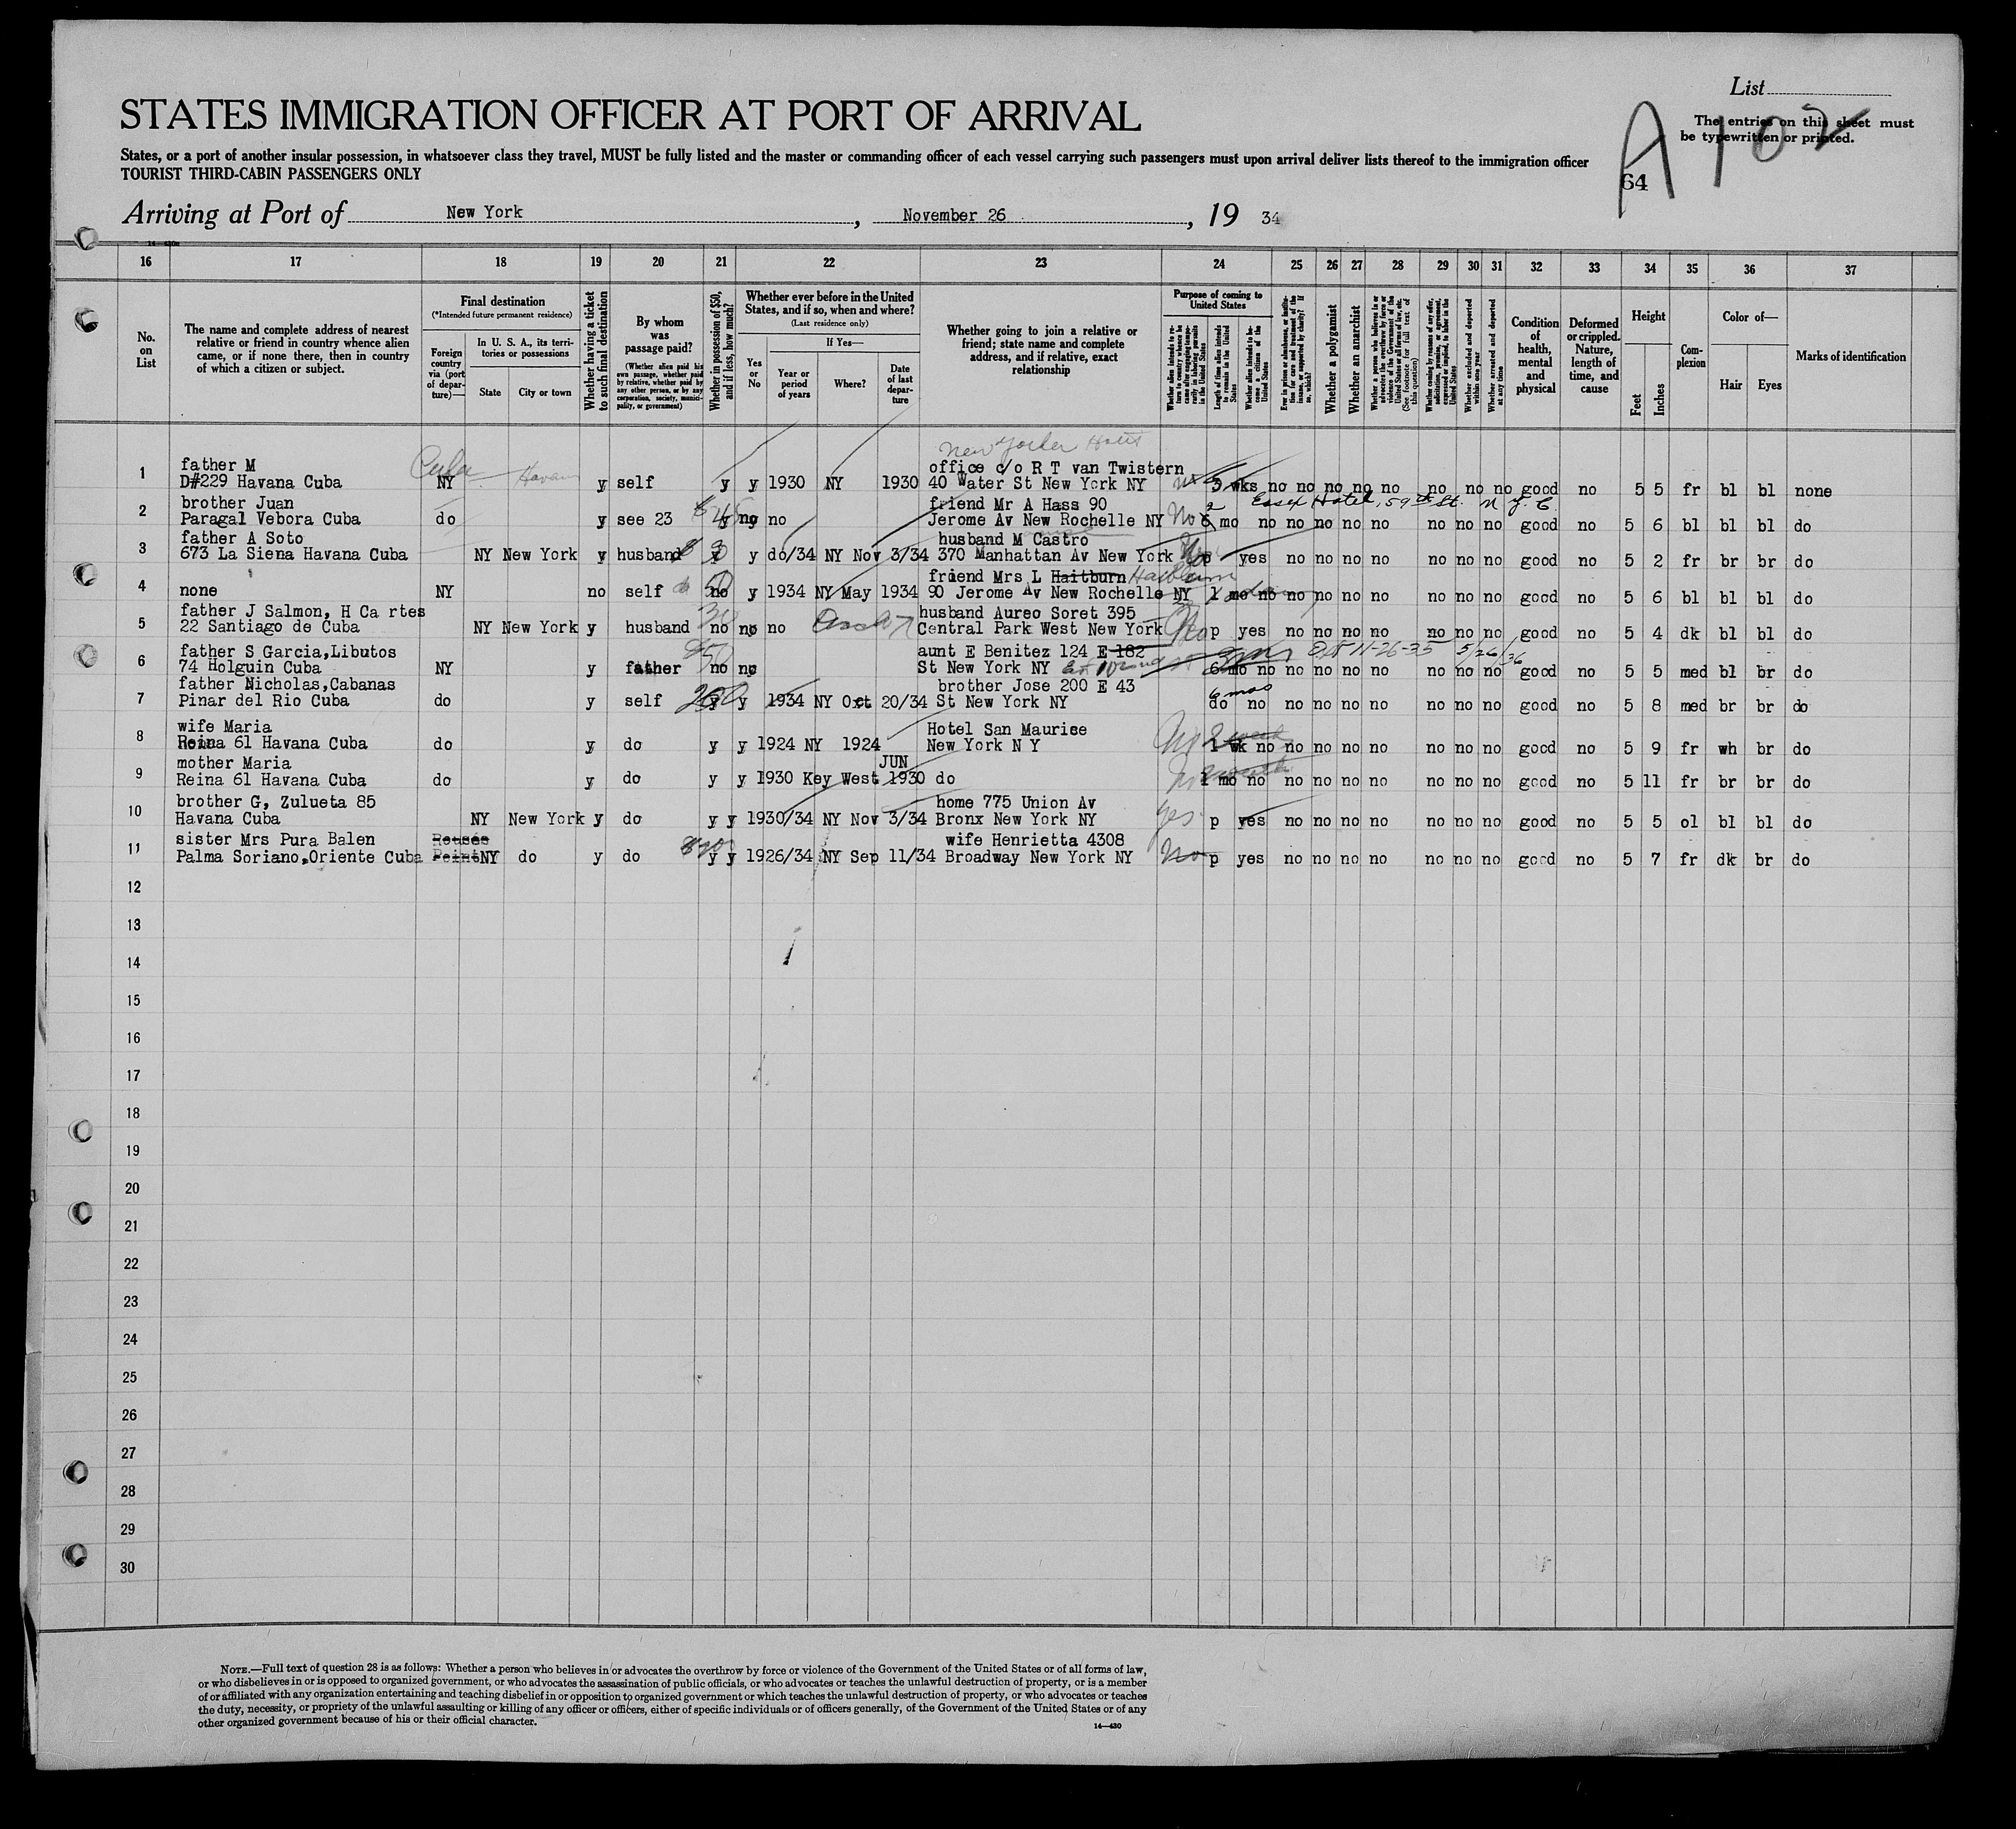 List
STATES IMMIGRATION OFFICER AT PORT OF ARRIVAL
The entries on this sheet must
be typewritten or printed.
A 102
64
States, or a port of another insular possession, in whatsoever class they travel, MUST be fully listed and the master or commanding officer of each vessel carrying such passengers must upon arrival deliver lists thereof to the immigration officer
TOURIST THIRD-CABIN PASSENGERS ONLY
Arriving at Port of New York, November 26, 19 34
16 17 18 19 20 21 22 23 24 25 26 27 28 29 30 31 32 33 34 35 36 37
No. on List
The name and complete address of nearest
relative or friend in country whence alien
came, or if none there, then in country
of which a citizen or subject.
Final destination
(*Intended future permanent residence)
Foreign country via (port of departure)—
In U. S. A., its territories or possessions
State
City or town
Whether having a ticket to such final destination
By whom was passage paid?
(Whether alien paid his own passage, whether paid by relative, whether paid by any other person, or by any corporation, society, municipality, or government)
Whether in possession of $50, and if less, how much?
Whether ever before in the United States, and if so, when and where?
(Last residence only)
Yes or No
If Yes—
Year or period of years
Where?
Date of last departure
Whether going to join a relative or
friend; state name and complete
address, and if relative, exact
relationship
Purpose of coming to United States
Length of time alien intends to remain in the United States
Whether alien intends to become a citizen of the United States
Whether a polygamist
Whether an anarchist
Whether excluded and deported within one year
Whether arrested and deported at any time
Condition of health, mental and physical
Deformed or crippled. Nature, length of time, and cause
Height
Feet
Inches
Complexion
Color of—
Hair
Eyes
Marks of identification
Cuba Havana New Yorker Hotel
father M office c/o R T van Twistern
1 D#229 Havana Cuba NY y self y y 1930 NY 1930 40 Water St New York NY 3 wks no no no no no no no no good no 5 5 fr bl bl none
brother Juan friend Mr A Hass 90 Essex Hotel, 59th St. N.Y.C.
2 Paragal Vebora Cuba do y see 23 y no no Jerome Av New Rochelle NY No 2 mo no no no no no no no no good no 5 6 bl bl bl do
father A Soto husband M Castro
3 673 La Siena Havana Cuba NY New York y husband y do/34 NY Nov 3/34 370 Manhattan Av New York p yes no no no no no no no good no 5 2 fr br br do
friend Mrs L Haitburn
4 none NY no self 50 no y 1934 NY May 1934 90 Jerome Av New Rochelle NY 1 mo no no no no no no no no good no 5 6 bl bl bl do
father J Salmon, H Ca rtes husband Aureo Soret 395
5 22 Santiago de Cuba NY New York y husband 30 no no no Central Park West New York No p yes no no no no no no no good no 5 4 dk bl bl do
father S Garcia,Libutos aunt E Benitez 124 E 182 11-26-35 5/26/36
6 74 Holguin Cuba NY y father 50 no no St New York NY 6 mo no no no no no no no no good no 5 5 med bl br do
father Nicholas,Cabanas brother Jose 200 E 43 6 mos
7 Pinar del Rio Cuba do y self 200 y y 1934 NY Oct 20/34 St New York NY do no no no no no no no no good no 5 8 med br br do
wife Maria Hotel San Maurice
8 Reina 61 Havana Cuba do y do y y 1924 NY 1924 New York N Y No 1 wk no no no no no no no no good no 5 9 fr wh br do
mother Maria JUN
9 Reina 61 Havana Cuba do y do y y 1930 Key West 1930 do 1 mo no no no no no no no no good no 5 11 fr br br do
brother G, Zulueta 85 home 775 Union Av
10 Havana Cuba NY New York y do y y 1930/34 NY Nov 3/34 Bronx New York NY yes p yes no no no no no no no good no 5 5 ol bl bl do
sister Mrs Pura Balen wife Henrietta 4308
11 Palma Soriano,Oriente Cuba NY do y do y y 1926/34 NY Sep 11/34 Broadway New York NY No p yes no no no no no no no good no 5 7 fr dk br do
12
13
14
15
16
17
18
19
20
21
22
23
24
25
26
27
28
29
30
NOTE.—Full text of question 28 is as follows: Whether a person who believes in or advocates the overthrow by force or violence of the Government of the United States or of all forms of law,
or who disbelieves in or is opposed to organized government, or who advocates the assassination of public officials, or who advocates or teaches the unlawful destruction of property, or is a member
of or affiliated with any organization entertaining and teaching disbelief in or opposition to organized government or which teaches the unlawful destruction of property, or who advocates or teaches
the duty, necessity, or propriety of the unlawful assaulting or killing of any officer or officers, either of specific individuals or of officers generally, of the Government of the United States or of any
other organized government because of his or their official character.
14—430